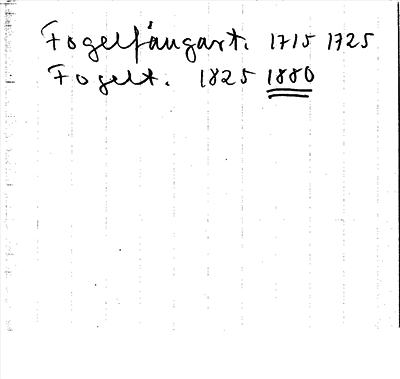 Fogelfångart. 1715 1725
Fogelt. 1825 1880